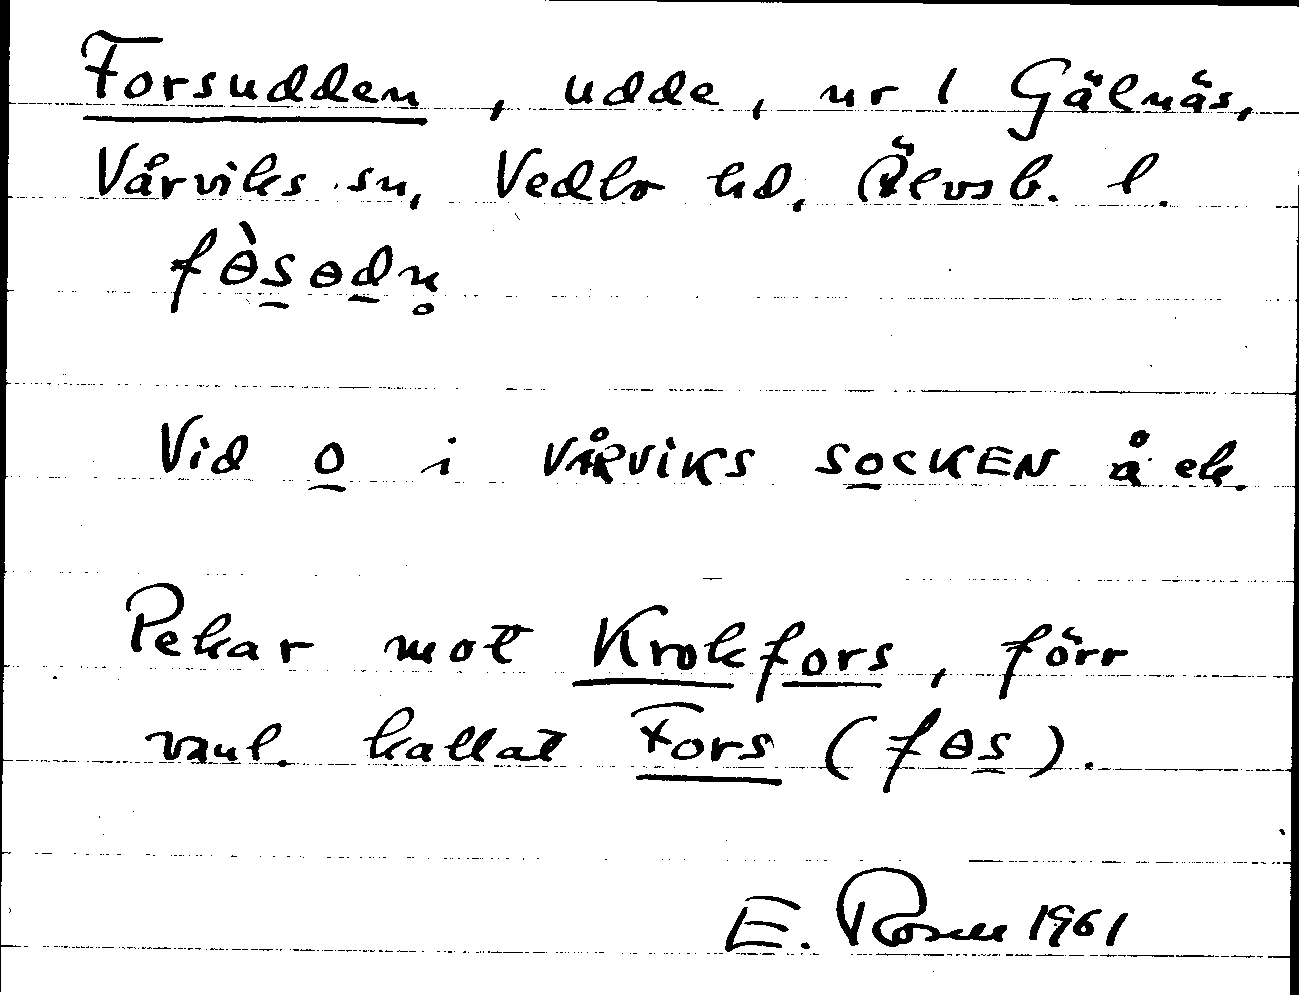 Forsudden, udde, nr 1 Gälnäs,
Vårviks sn, Vedbo hd, Älvsb. l.
fɵ̀sɵdn̥
Vid o i VÅRVIKS SOCKEN å ek.
Pekar mot Krokfors, förr
vanl. kallat Fors (fɵs).
E. Rosell 1961